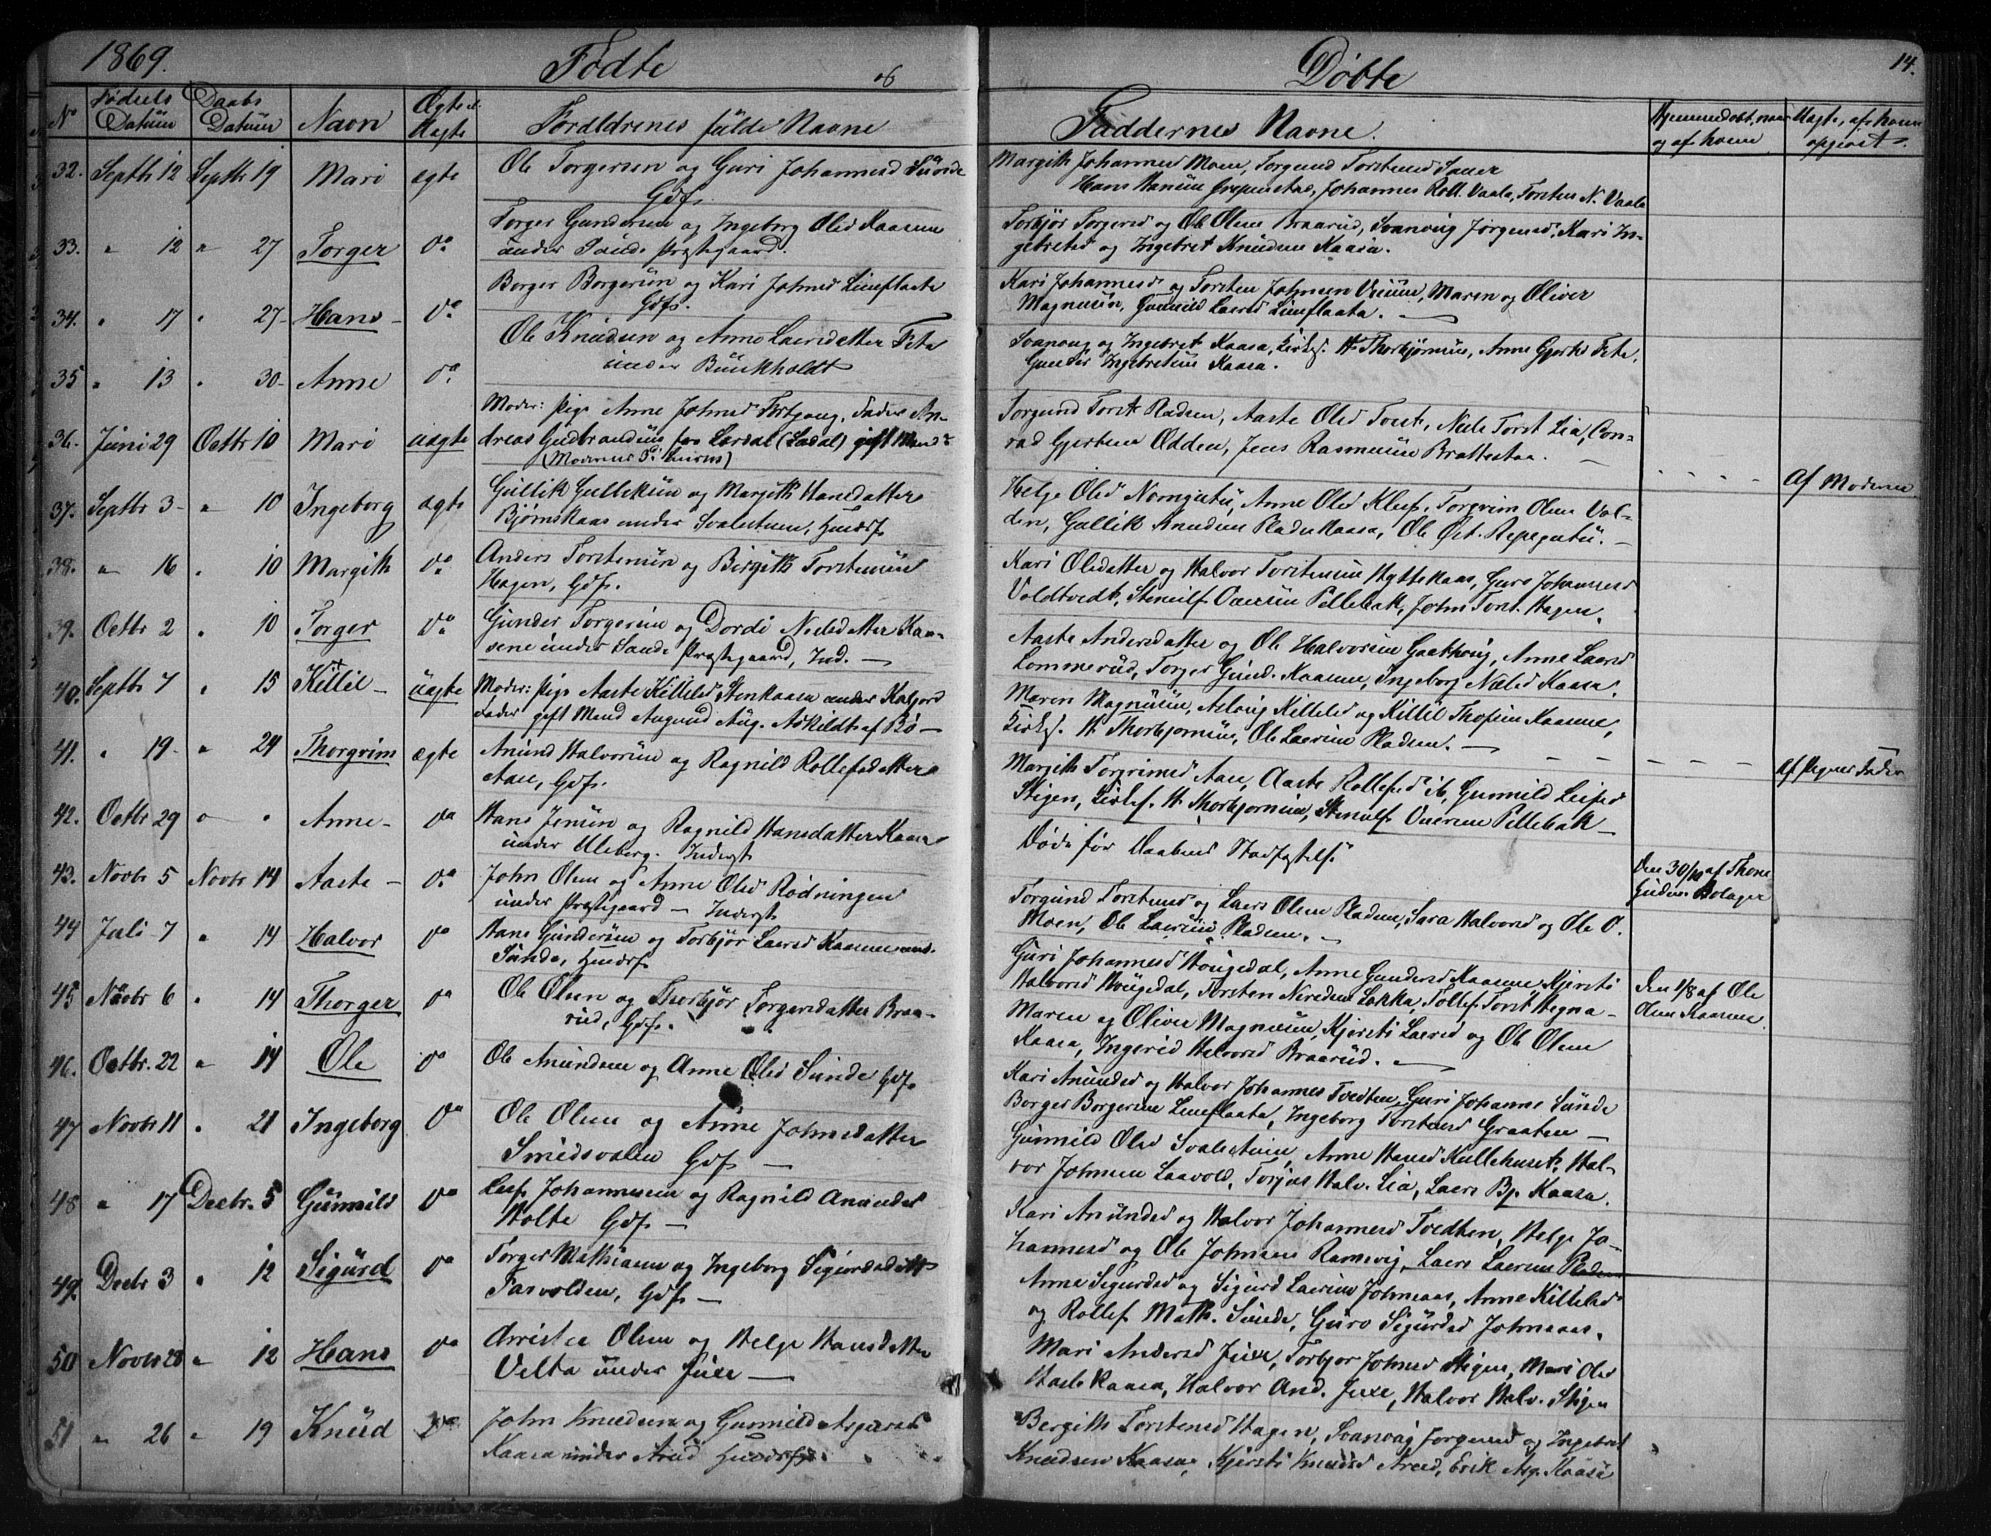 1869.
Fødte
og
Døbte
14.
No
Fødsels Datüm
Daabs Datüm
Navn
Ægte el. Uægte
Forældrenes fülde Navne
Faddernes Navne.
Hjemmedøbt, naar og af hvem
Uægte, af hvem opgivet
32. Septbr 12 Septbr 19 Mari ægte Ole Torgersen og Guri Johannesd Sünde
Gdf.
Margith Johannesd Moen, Torgund Torstensd
Hans Hansen Johannes Roll. Vaala, Torsten N. Vaala
33. " 12 " 27 Torger do Torger Gundersen og Ingeborg Olesd Kaasene
under Præstegaard.
Torbjør Torgersd og Ole Olsen Braarud, Svanoug Jørgensd, Kari In-
gebretsd og Ingebret Knudsen Kaasa.
34. " 17 " 27 Hans - do Borger Borgersen og Kari Johnsd Lineflaata
Gdf.
Kari Johannesd og Torsten Johnsen Maren og Oliver
Magnusen, Gunnild Laersd Lineflaata.
35 " 13 " 30 - Anne do Ole Knudsen og Anne Laersdatter Feta
under Bünkholdt
Svanoug og Ingebret Kaasa, Kirkes. H Thorbjørnsen, Anne Feta,
Gunder Ingebretsen Kaasa.
36. Juni 29 Octbr 10 Mari uægte Moder: Pige Anne Johnsd Fader An-
dreas Gudbrandsen fra Lardal (Ladal) gift Mand
(Moderens
Torgund Torst. Pladsen, Aaste Olesd Nils Torst Lia, Con-
rad Gjertsen Odden, Jens Rasmusen Brattestaa.
Af Moderen
37. Septbr 3 - " 10 Ingeborg ægte Gullik Gulleksen og Margith Hansdatter
Bjørnskaas under Svalestuen, Husmf
Helge Olesd Anne Olesd Kleif, Torgrim Olsen Vol-
den, Gullik Knudsen Kaasa, Ole Øst.
38. " 16 " 10 Margith do Anders Torstensen og Birgith Torstensen
Hagen, Gdf.
Kari Olsdatter og Halvor Torstensen Hyttekaas, Guro Johannesd
Voldtvedt, Steinulf Oversen Pellebak, John Torst. Hagen.
39. Octbr 2 " 10 Torger do Gunder Torgersen og Dordi Nielsdatter Kaa-
sene under Sande Præstegaard, Ind. -
Aaste Andersdatter og Ole Halvorsen Anne Laersd
Lommerud, Torger Gund. Kaasene, Ingeborg Nielsd Kaasa.
40. Septbr 7 " 15 Kittil - uægte Moder: Pige Aaste Kittelsd Stenkaasa under
Fader gift Mand Aug. Askildt af Bø -
Maren Magnusen, Aslaug Kittelsd og Kittil Thofsen Kaasene,
Kirkes. H Thorbjørnsen, Ole Laersen Pladsen. -
Af Pigens Fader
41. " 19 - " 24 Thorgrim ægte Anund Halvorsen og Ragnild Rollefsdatter
Aase, Gdf.
Margith Torgrimsd Aase, Aaste Rollefsd ib, Gunnild Leifsd
Stigen, Kirkes. H Thorbjørnsen, Steinulf Oversen Pellebak -
42. Octbr 29 " " Anne - do Hans Jensen og Ragnild Hansdatter Kaasa
under Uleberg. Inderst
Døde før Daabens Stadfæstelse
Den 30/10 af Thone
Gudm. Bolager
43. Novbr 5 Novbr 14 Aaste - do John Olsen og Anne Olesd Rødningen
under Præstegaard - Inderst
Torgund Torstensd og Laers Olsen Pladsen, Sara Halvorsd og Ole O.
Moen, Ole Laersen Pladsen. -
44 Juli 7 " 14 Halvor do Hans Gundersen og Torbjør Laersd Kaasene und.
Sünde, Husmf
Guri Johannesd Hougedal, Anne Gundersd Kaasene, Kjersti
Halvorsd Hougedal, Torsten Tollef Torst Hegna -
Den 1/8 af Ole
Olsen Kaasene
45 Novbr 6 " 14 Thorger do Ole Olsen og Thorbjør Torgersdatter Braa-
rud, Gdf.
Maren og Oliver Magnusen, Kjersti Laersd og Ole Olsen
Kaasa, Ingerid Halvorsd Braarud.
46. Octbr. 22 " 14 Ole do Ole Anundsen og Anne Olesd Sünde Gdf
Kari Anundsd og Halvor Johannes Tvedten, Guri Johannes Sünde
Borger Borgersen Lineflaata, Ingeborg Torstensd Graaten -
47 Novbr 11 " 21 Ingeborg do Ole Olsen og Anne Johnsdatter
Smidsvalen Gdf -
Gunnild Olesd Svalestuen, Anne Hansd Kullehuset, Hal-
vor Johnsen Laavold, Torjus Halv. Lia, Laers Bj. Kaasa.
48 " 17 Decbr. 5 Gunnild do Leif Johannesen og Ragnild Anundsd
Holte Gdf -
Kari Anundsd og Halvor Johannesd Tvedten, Helge Jo-
hannesd og Ole Johnsen Ramsvig, Laers Laersen Pladsen
49. Decbr 3 " 12 Sigurd do Torger Mathisen og Ingeborg Sigurdsdatt
Farvolden, Gdf -
Anne Sigurdsd og Sigurd Laersen Johnsaas, Anne Kittelsd
og Rollef Math. Sünde, Guro Sigurdsd Johnsaas.
50 Novbr 28 " 12 Hans do Christen Olsen og Helge Hansdatter
Velta under Juve -
Mari Andersd Juve, Torbjør Johnsd Stigen, Mari Olesd
Kaasa, Halvor And. Juve, Halvor Halv. Stigen
51 " 26 " 19 Knüd do John Knudsen og Gunnild Asgarsd
Kaasa under Arud Husmf.
Bergith Torstensd Hagen, Svanoug Jorgensd og Ingebret
Knudsen Kaasa, Kjersti Knudsd Aarud, Erik Asg. Kaasa